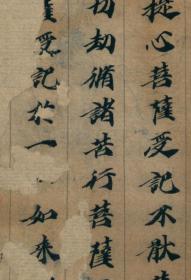 從心菩薩受記不猒
切劫脩諸苦行菩薩
受記於一如來